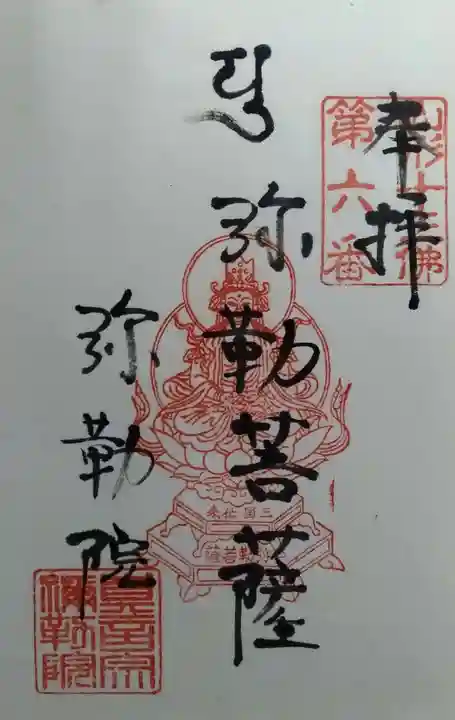 奉拝
山形十三佛
第六番
弥勒菩薩
三国伝来
弥勒菩薩
弥勒院
真言宗
彌勒院